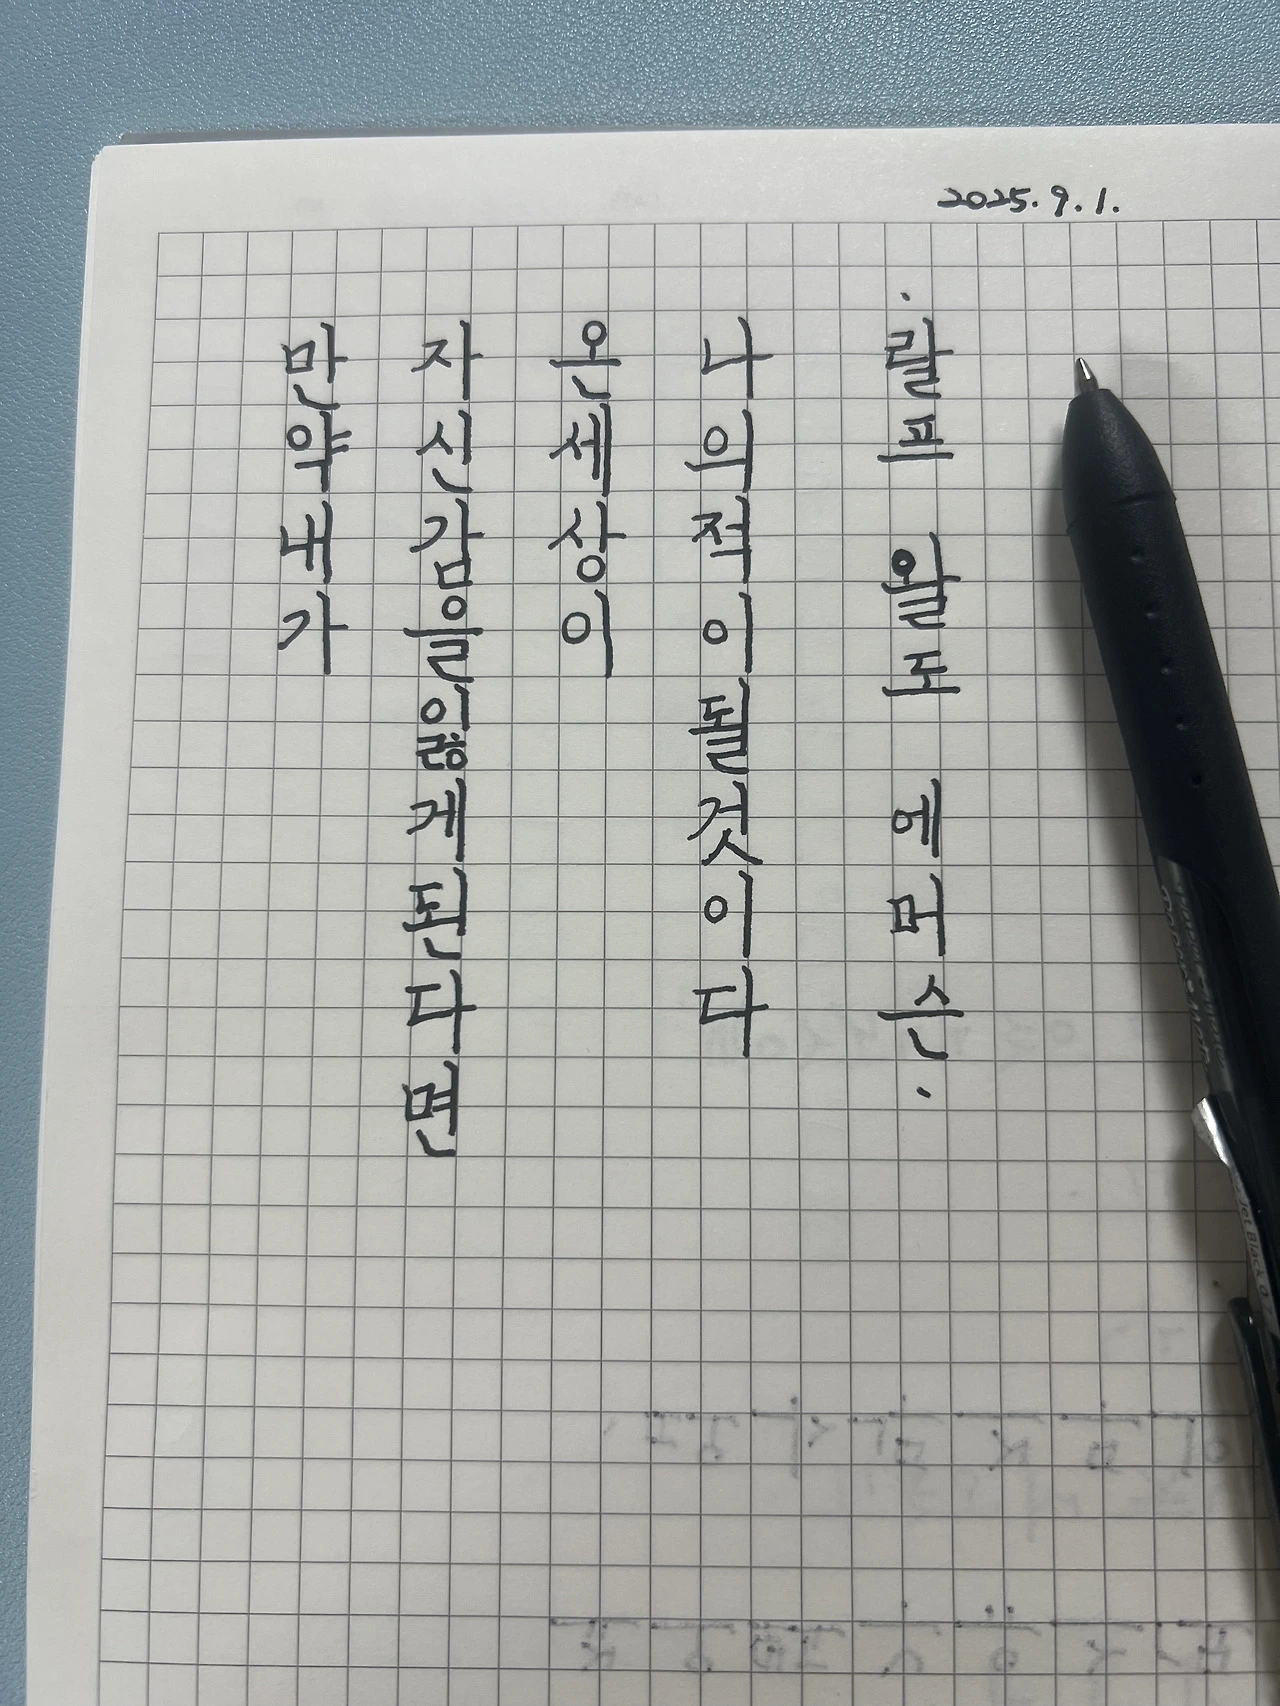 2025. 9. 1.
만약내가
자신감을잃게된다면
온세상이
나의적이될것이다
· 랄프 왈도 에머슨 ·
Jet Black 0.7